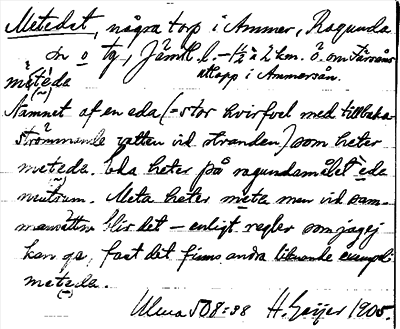 Metedat, några torp i Ammer, Ragunda
sn o tg, Jämtl. l. – 1½ à 2 km. ö. om Färsåns
utlopp i Ammersån.
méteda
Namnet af en eda (= stor hvirfvel med tillbaka-
strömmande vatten vid stranden) som heter
meteda. Eda heter på ragundamålet èda
neutrum. Meta heter meta men vid sam-
mansättn. blir det – enligt regler som jag ej
kan ge, fast det finns andra liknande exempel
meteda.
Ulma 508:38 H. Geijer 1905.